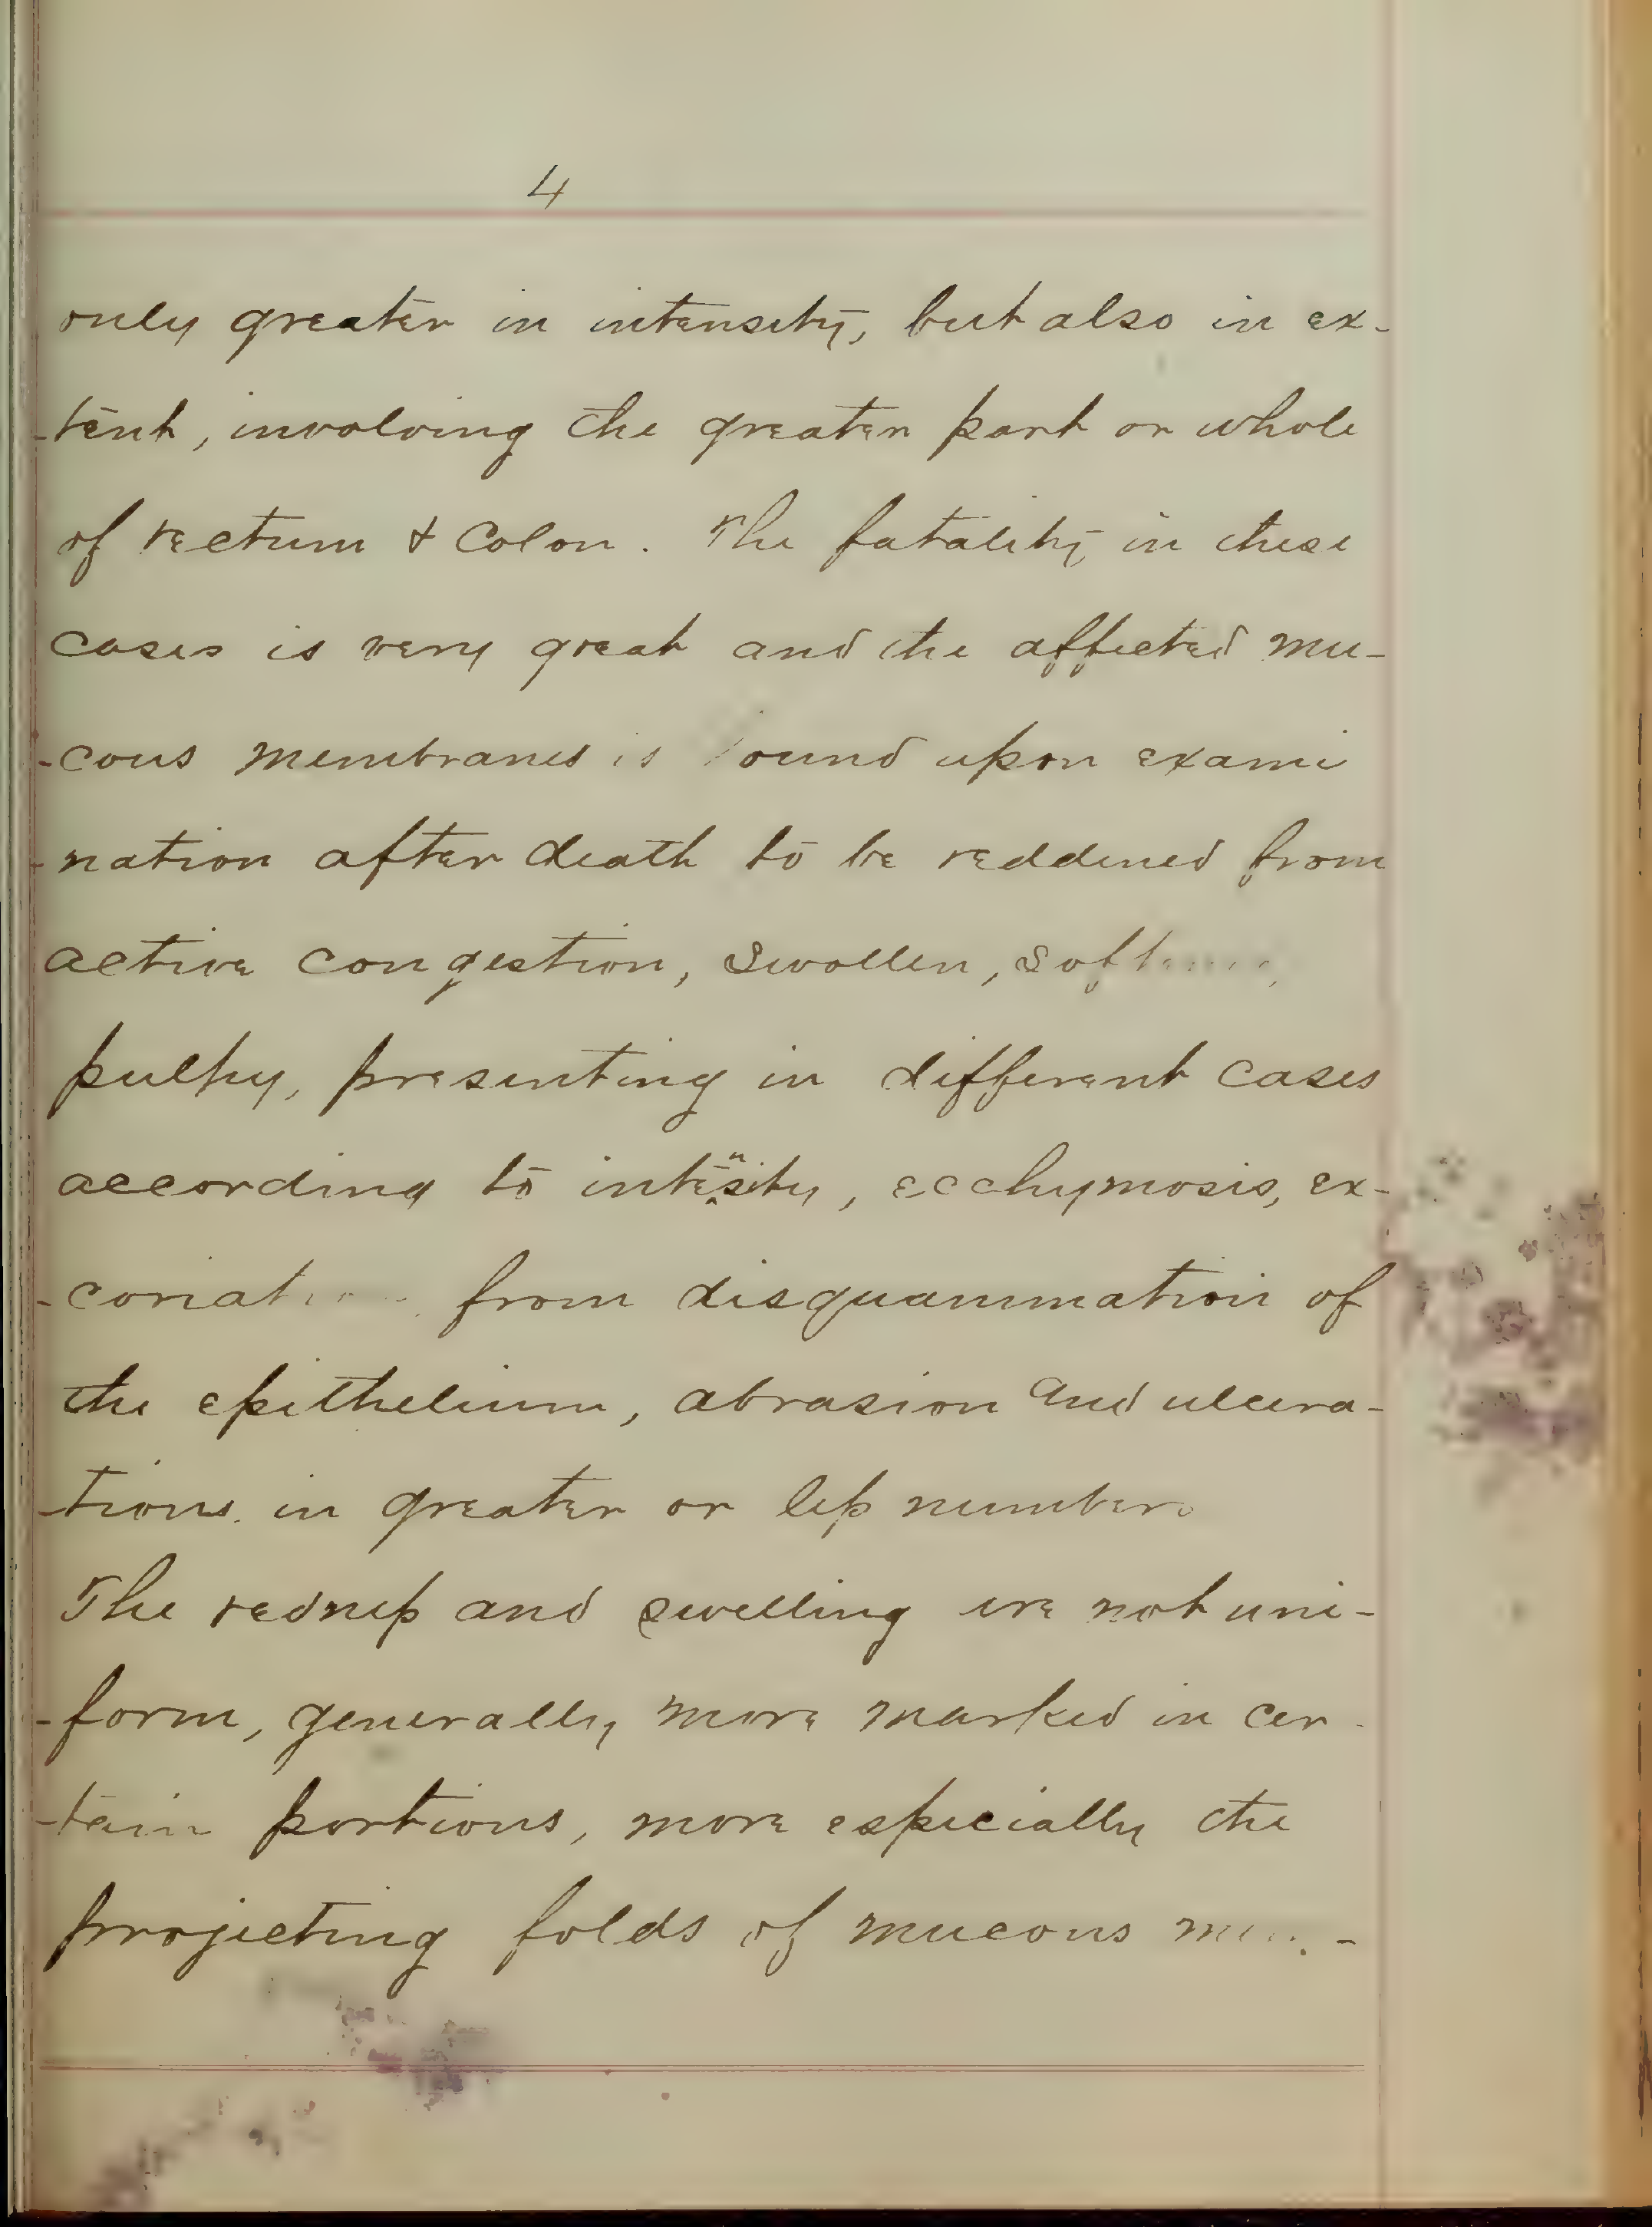 4
only greater in intensity, but also in ex-
-tent, involving the greater part or whole
of rectum & Colon. The fatality in these
cases is very great and the affected mu-
-cous membranes is found upon exami
-nation after death to be reddened from
active congestion, swollen,
pulpy, presenting in different cases
according to intensity, ecchymosis, ex-
-coriat from disquammation of
the epithelium, abrasion and ulcera-
-tions in greater or less number
The redness and swelling are not uni-
-form, generally more marked in cer-
-tain portions, more especially the
projecting folds of mucous